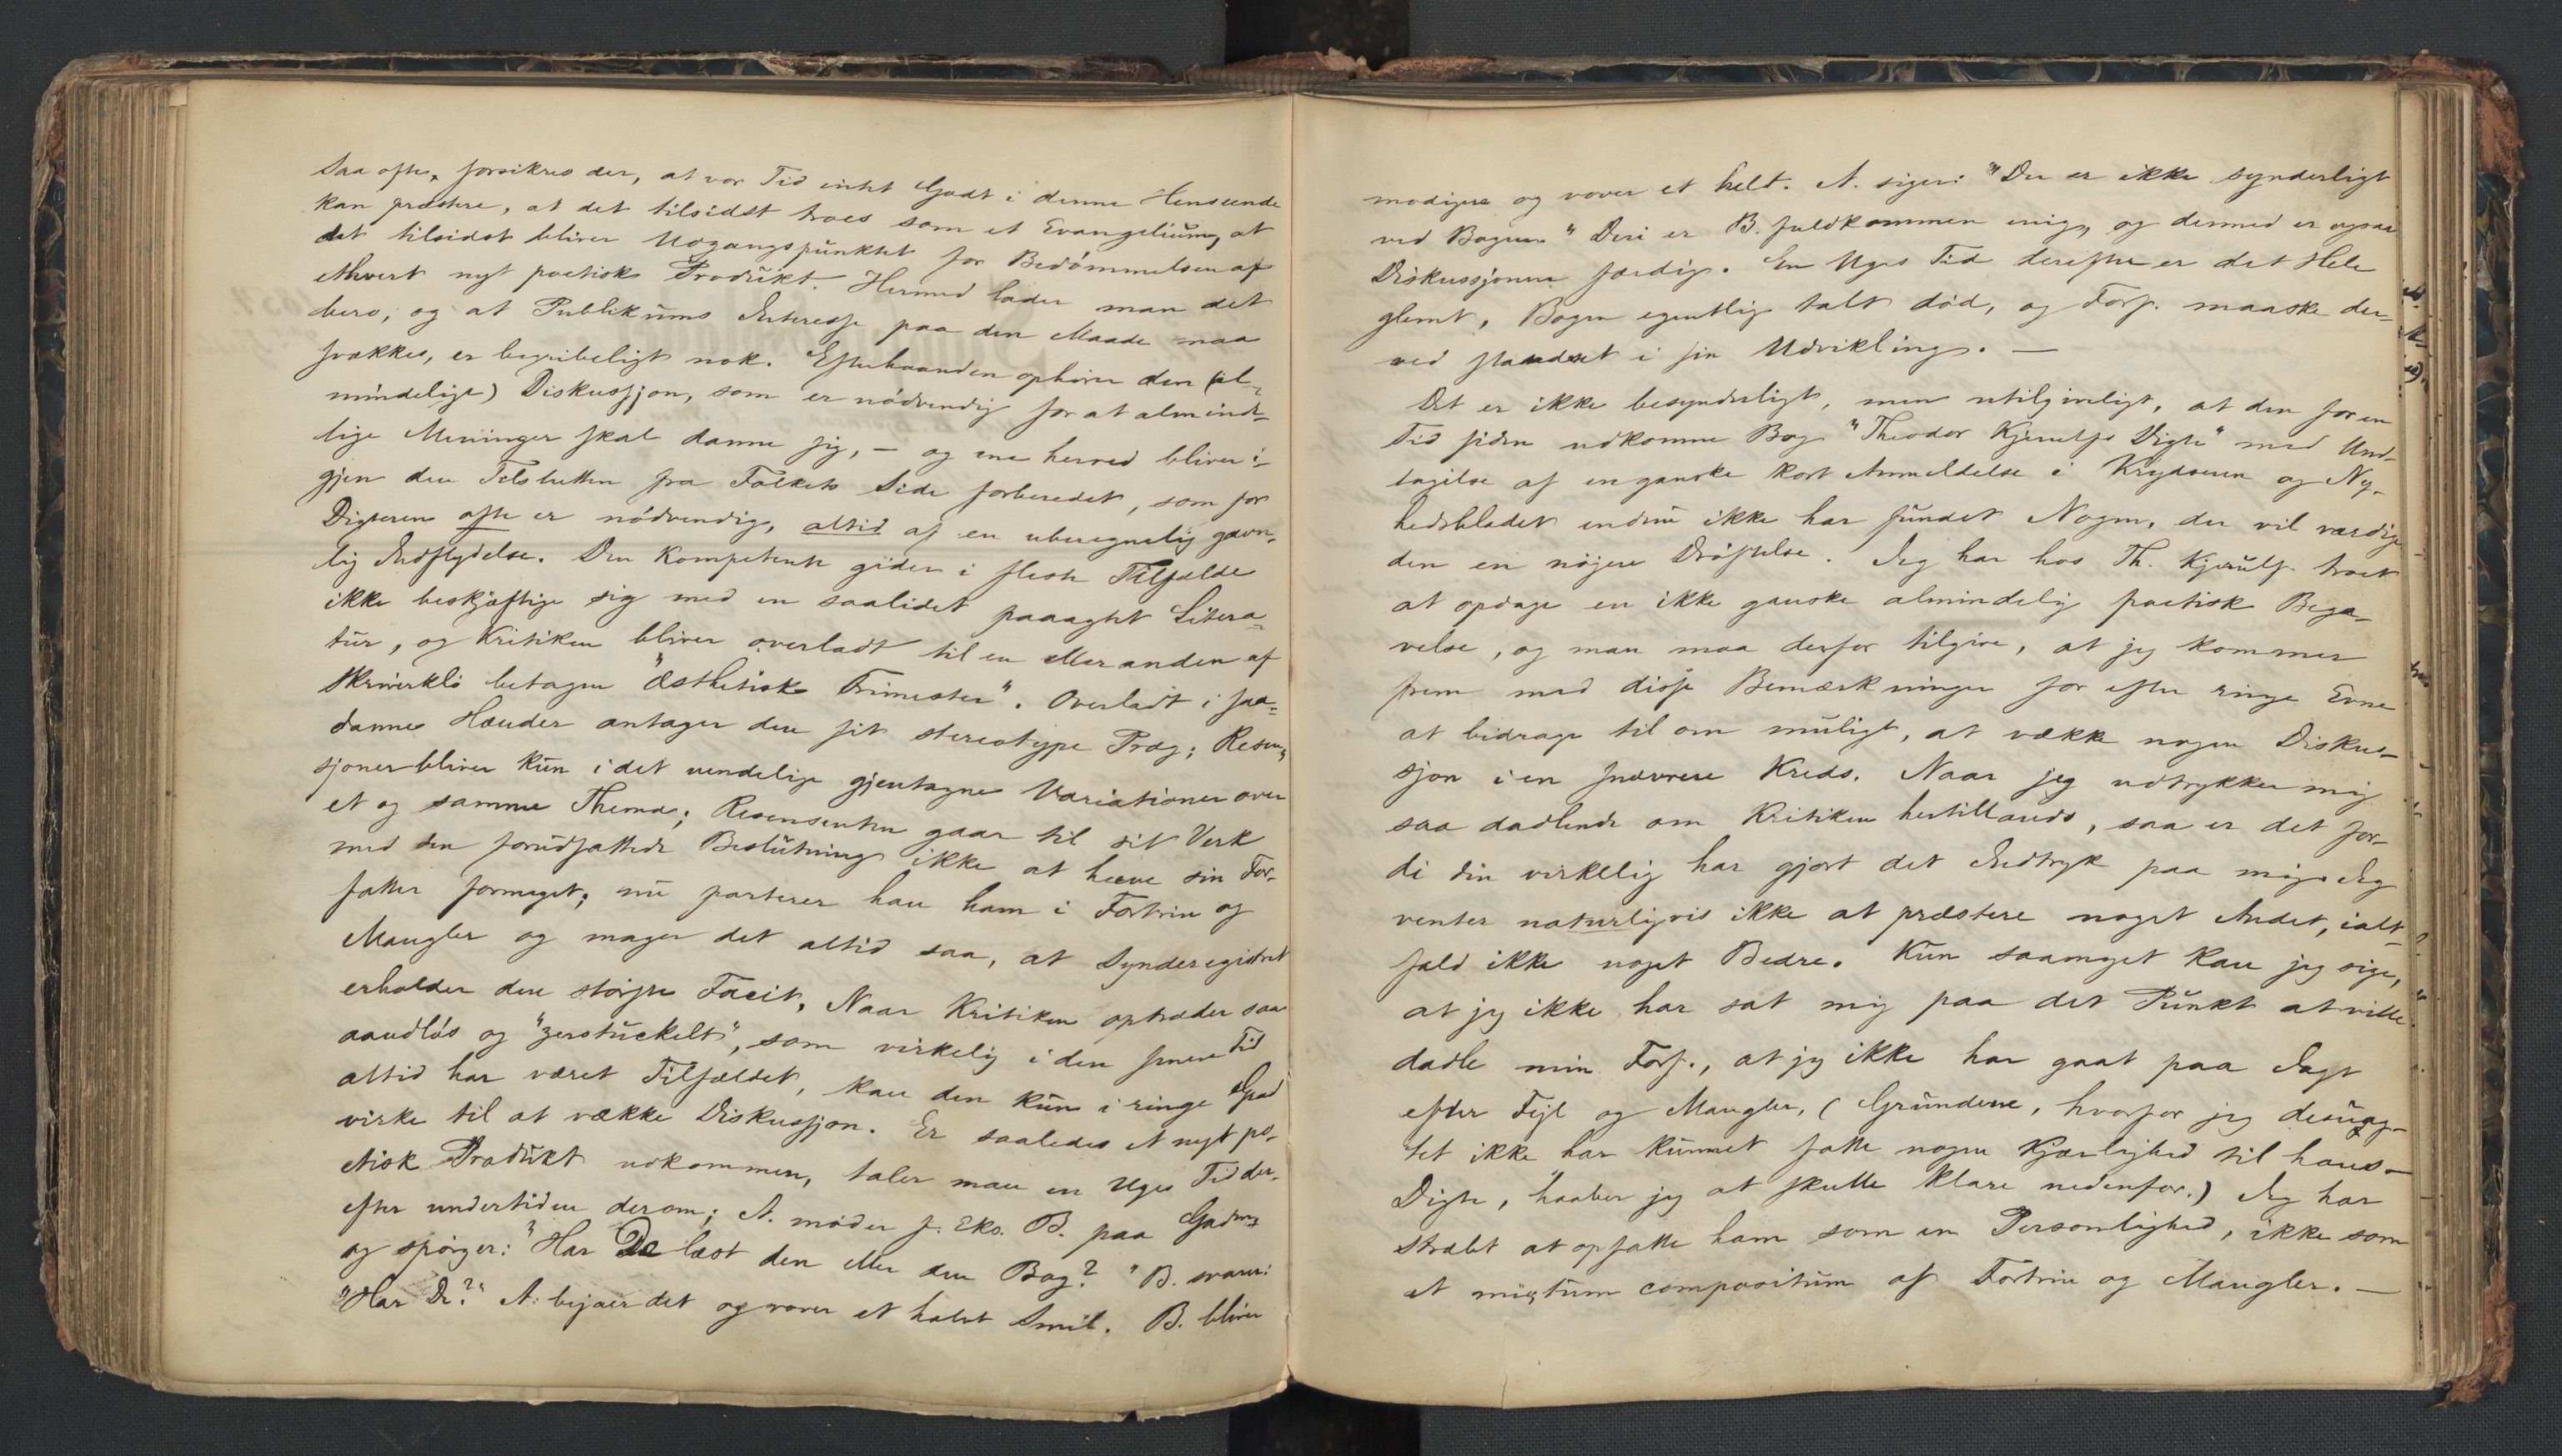 Saa ofte forsikres der, at vor Tid intet Godt i denne Henseende
kan præstere, at det tilsidst troes som et Evangelium, at
det tilsidst bliver Udgangspunktet for Bedömmelsen af
ethvert nyt poetisk Produkt. Hermed lader man det
bero; og at Publikums Interesse paa den Maade maa
svækkes, er begribeligt nok. Efterhaanden ophörer den (al-
mindelige) Diskussjon, som er nödvendig for at alminde-
lige Meninger skal danne sig, – og
gjen den fra Folkets Side forberedet, som for
Digteren ofte er nödvendig, altid af en uberegnelig gavn-
lig Indflydelse. Den Kompetente gider i fleste Tilfælde
ikke beskjæftige sig med en saalidet paaagtet Litera-
tur, og Kritiken bliver overladt til en eller anden af
Skrivekló betagen "Æsthetisk Trimester". Overladt i saa-
danne Hænder antager den sit stereotype Præg; Resen-
sjoner bliver kun i det uendelige gjentagne Variationer over
et og samme Thema; Resensenten gaar til sit Verk
med den forudfattede Beslutning ikke at hæve sin For-
fatter formeget; nu parterer han ham i Fortrin og
Mangler og mager det altid saa, at Synderegistret
erholder den störste Facit. Naar Kritiken optræder saa
aandlös og "zerstückelt", som virkelig i den senere Tid
altid har været Tilfældet, kan den kun i ringe Grad
virke til at vække Diskussjon. Er saaledes et nyt po-
etisk Produkt udkommen, taler man en Uges Tid der-
efter undertiden derom; A. möder f. Eks. B. paa Gaden
og spörger: "Har De læst den eller den Bog?" B. svarer:
"Har De?" A. bejaer det og vover et halvt Smil. B. bliver
modigere og vover et helt. A. siger: "Der er ikke synderligt
ved Bogen." Deri er B. fuldkommen enig, og dermed er ogsaa
Diskussjonen færdig. En Uges Tid derefter er det Hele
glemt, Bogen egentlig talt död, og Forf. maaske der-
ved standset i sin Udvikling. —
Det er ikke besynderligt, men utilgiveligt, at den for en
Tid siden udkomne Bog "Theodor Kjerulfs Digte" med Und-
tagelse af en ganske kort Anmeldelse i Krydseren og Ny-
hedsbladet endnu ikke har fundet Nogen, der vil værdige
den en nöjere Dröftelse. Jeg har hos Th. Kjerulf troet
at opdage en ikke ganske almindelig poetisk Bega-
velse, og man maa derfor tilgive, at jeg kommer
frem med disse Bemærkninger for efter ringe Evne
at bidrage til om muligt, at vække nogen Diskus-
sjon i en snævrere Kreds. Naar jeg udtrykker mig
saa dadlende om Kritiken hertillands, saa er det for-
di den virkelig har gjort det Indtryk paa mig. Jeg
venter naturligvis ikke at præstere noget Andet, ialt-
fald ikke noget Bedre. Kun saameget kan jeg sige,
at jeg ikke har sat mig paa det Punkt at ville
dadle min Forf., at jeg ikke har gaat paa Jagt
efter Fejl og Mangler, (Grundene, hvorfor jeg desuag-
tet ikke har kunnet fatte nogen Kjærlighed til hans
Digte, haaber jeg at skulle klare nedenfor.) Jeg har
stræbt at opfatte ham som en Personlighed, ikke som
et mixtum compositum af Fortrin og Mangler. —